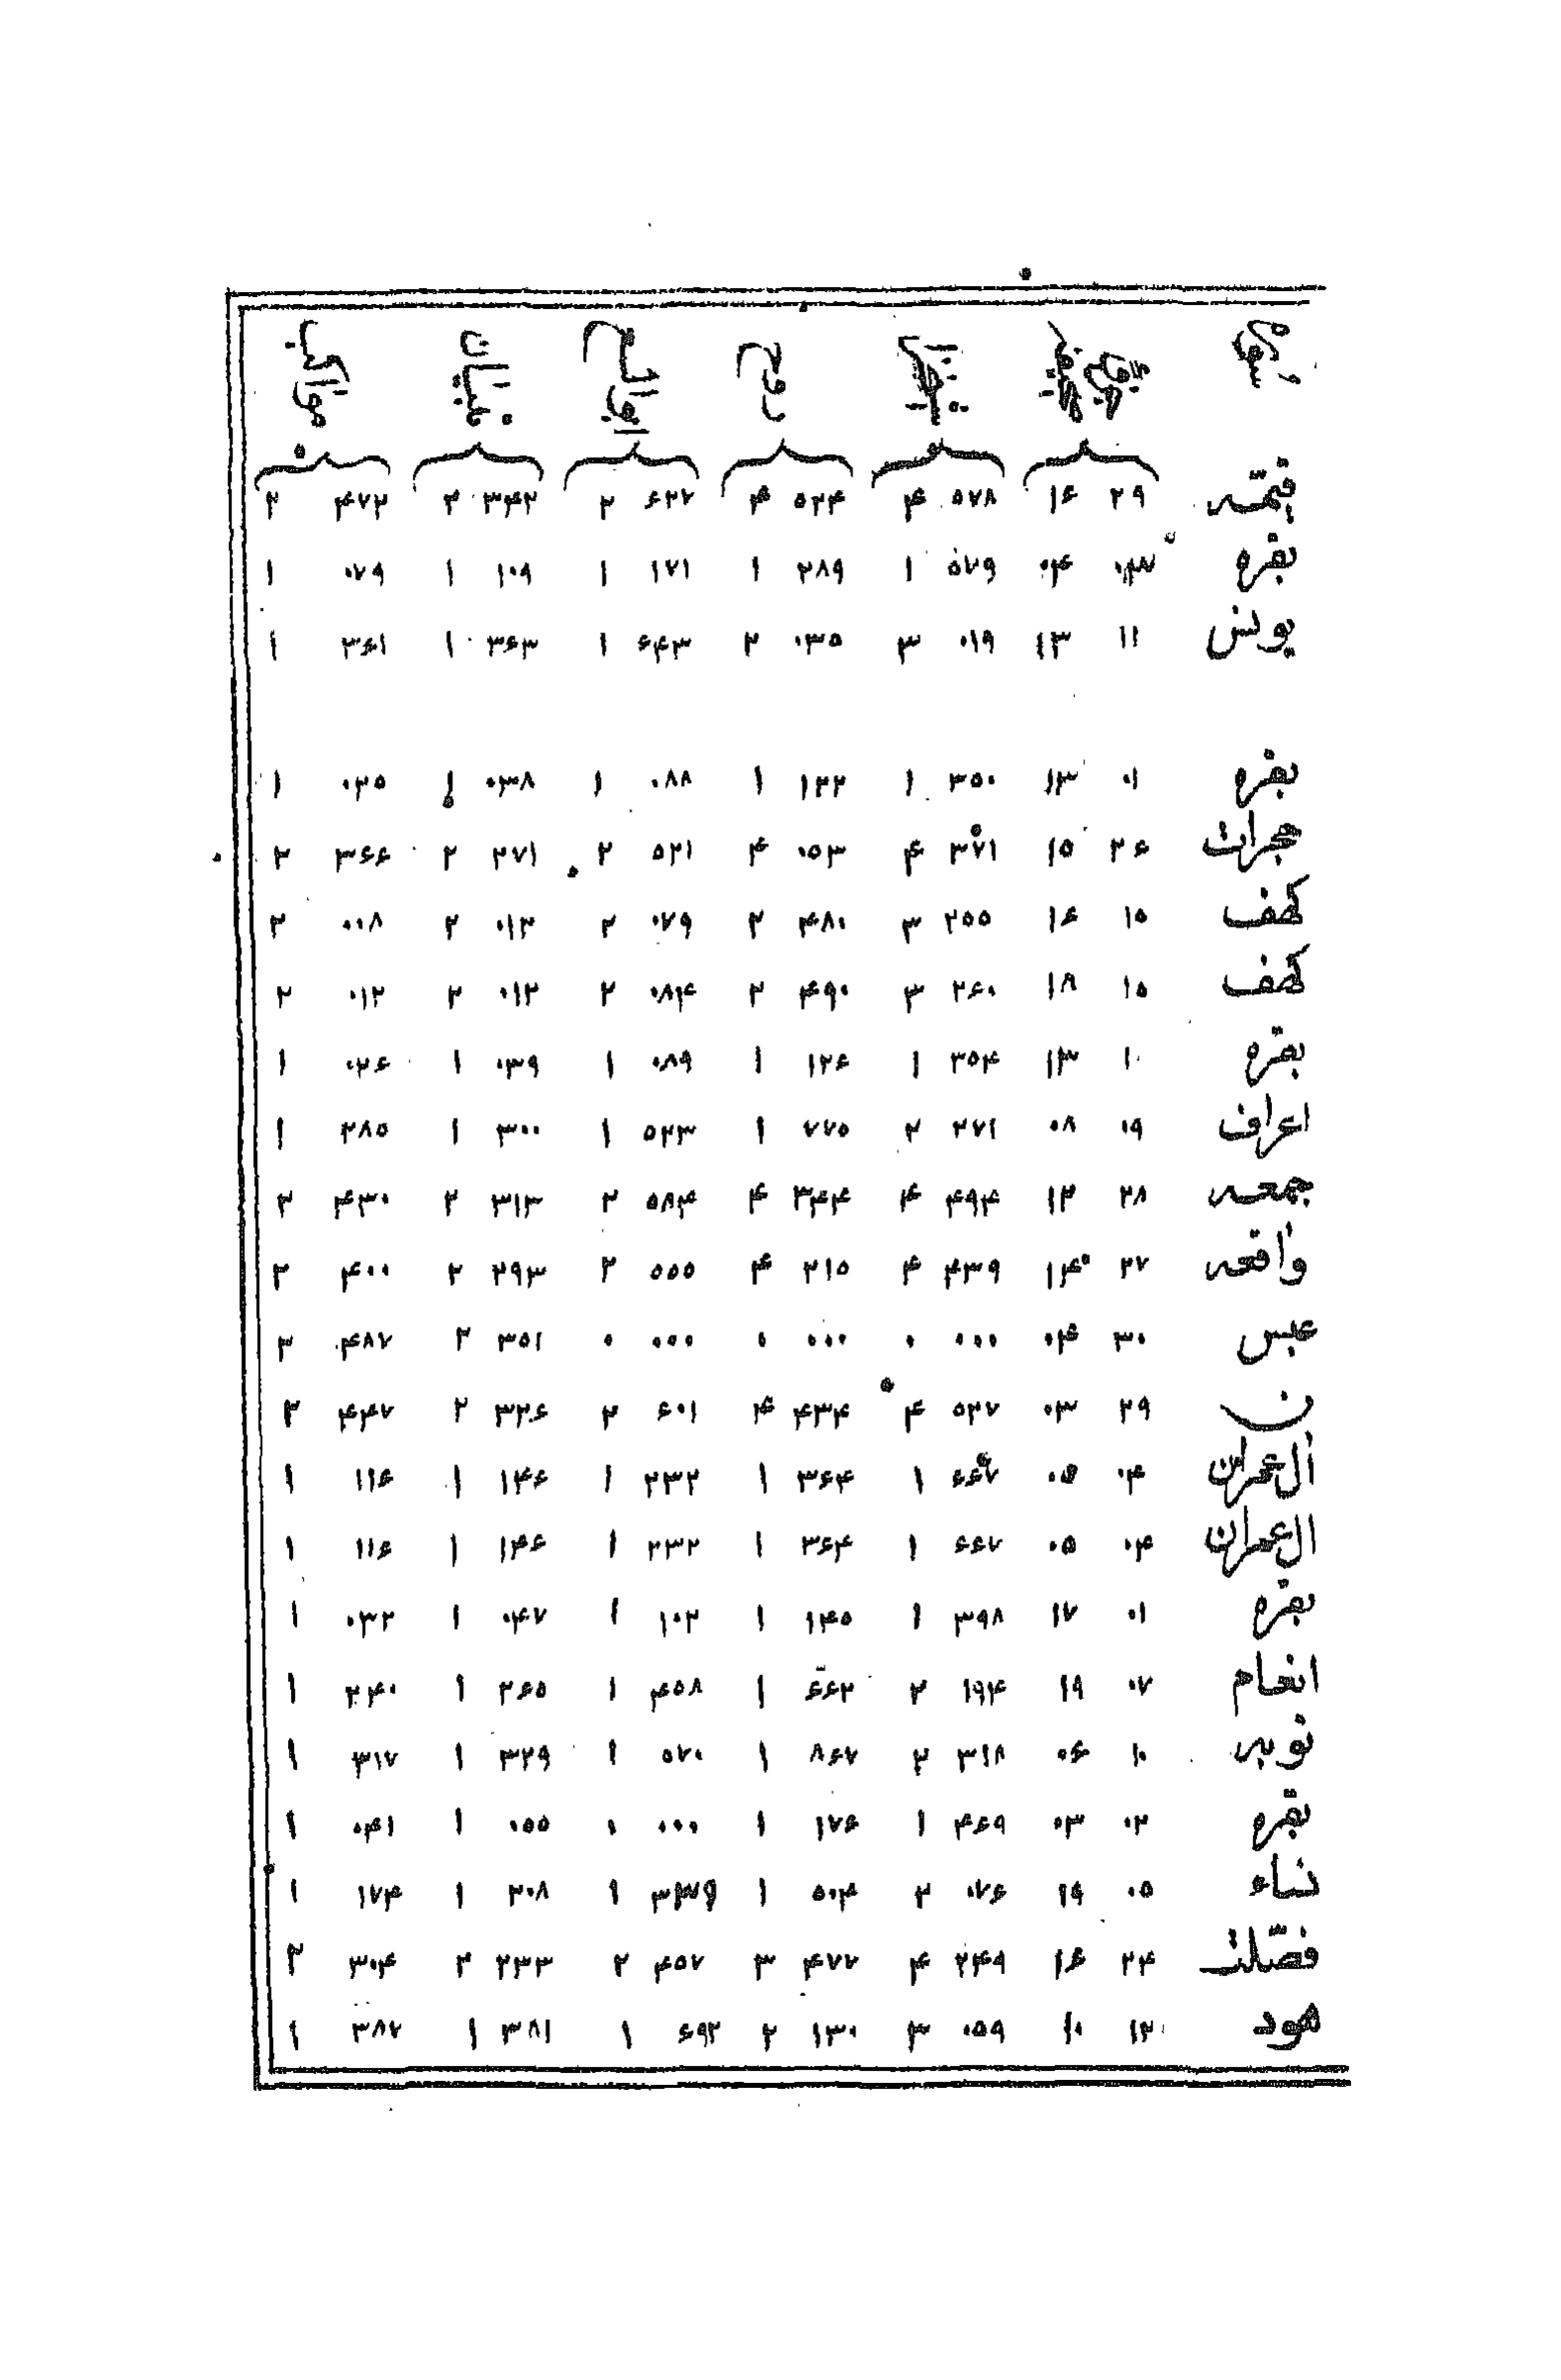 قیمه ۲۹ ۱۶ ۵۷۸ ۴ ۵۲۴ ۴ ۶۲۷ ۲ ۳۴۲ ۲ ۴۷۲ ۲
بقره ۰۴ ۵۷۹ ۱ ۲۸۹ ۱ ۱۷۱ ۱ ۱۰۹ ۱ ۰۷۹ ۱
یونس ۱۱ ۱۳ ۰۱۹ ۳ ۰۳۵ ۲ ۶۴۳ ۱ ۳۶۳ ۱ ۳۶۱ ۱
بقره ۰۱ ۱۳ ۳۵۰ ۱ ۱۲۲ ۱ ۰۸۸ ۱ ۰۳۸ ۱ ۰۲۵ ۱
حجرات ۲۶ ۱۵ ۳۷۱ ۴ ۰۵۳ ۴ ۵۲۱ ۲ ۲۷۱ ۲ ۳۶۶ ۲
کهف ۱۵ ۱۶ ۲۵۵ ۳ ۴۸۰ ۲ ۰۷۹ ۲ ۰۱۲ ۲ ۰۰۸ ۲
کهف ۱۵ ۱۸ ۲۶۰ ۳ ۴۹۰ ۲ ۰۸۴ ۲ ۰۱۲ ۲ ۰۱۲ ۲
بقره ۱۰ ۱۳ ۳۵۴ ۱ ۱۲۶ ۱ ۰۸۹ ۱ ۰۳۹ ۱ ۰۲۶ ۱
اعراف ۰۹ ۰۸ ۲۷۱ ۲ ۷۷۵ ۱ ۵۲۳ ۱ ۳۰۰ ۱ ۲۸۵ ۱
جمعه ۲۸ ۱۲ ۴۹۴ ۴ ۳۴۴ ۴ ۵۸۴ ۲ ۳۱۳ ۲ ۴۳۰ ۲
واقعه ۲۷ ۱۴ ۴۳۹ ۴ ۲۱۵ ۴ ۵۵۵ ۲ ۲۹۳ ۲ ۴۰۰ ۲
عبس ۳۰ ۰۴ ۰۰۰ ۰ ۰۰۰ ۰ ۰۰۰ ۰ ۳۵۱ ۲ ۴۸۷ ۲
ن ۲۹ ۰۳ ۵۲۷ ۴ ۴۳۴ ۴ ۶۰۱ ۲ ۳۲۶ ۲ ۴۴۷ ۲
آل عمران ۰۴ ۰۵ ۶۶۷ ۱ ۳۶۴ ۱ ۲۳۲ ۱ ۱۴۶ ۱ ۱۱۶ ۱
ال عمران ۰۴ ۰۵ ۶۶۷ ۱ ۳۶۴ ۱ ۲۳۲ ۱ ۱۴۶ ۱ ۱۱۶ ۱
بقره ۰۱ ۱۷ ۳۹۸ ۱ ۱۴۵ ۱ ۱۰۲ ۱ ۰۴۷ ۱ ۰۳۲ ۱
انعام ۰۷ ۱۹ ۱۹۴ ۲ ۶۶۲ ۱ ۴۵۸ ۱ ۲۶۵ ۱ ۲۴۰ ۱
توبه ۱۰ ۰۶ ۳۱۸ ۲ ۸۶۷ ۱ ۵۷۰ ۱ ۳۲۹ ۱ ۳۱۷ ۱
بقره ۰۲ ۰۳ ۴۶۹ ۱ ۱۷۶ ۱ ۰۰۰ ۰ ۰۵۵ ۱ ۰۴۱ ۱
نساء ۰۵ ۱۹ ۰۷۶ ۲ ۵۰۴ ۱ ۱ ۲۰۸ ۱ ۱۷۴ ۱
فصّلت ۲۴ ۱۶ ۲۴۹ ۴ ۴۷۷ ۳ ۴۵۷ ۲ ۲۳۳ ۲ ۳۰۴ ۲
هود ۱۲ ۱۰ ۰۵۹ ۳ ۱۳۰ ۲ ۶۹۲ ۱ ۳۸۱ ۱ ۳۸۷ ۱